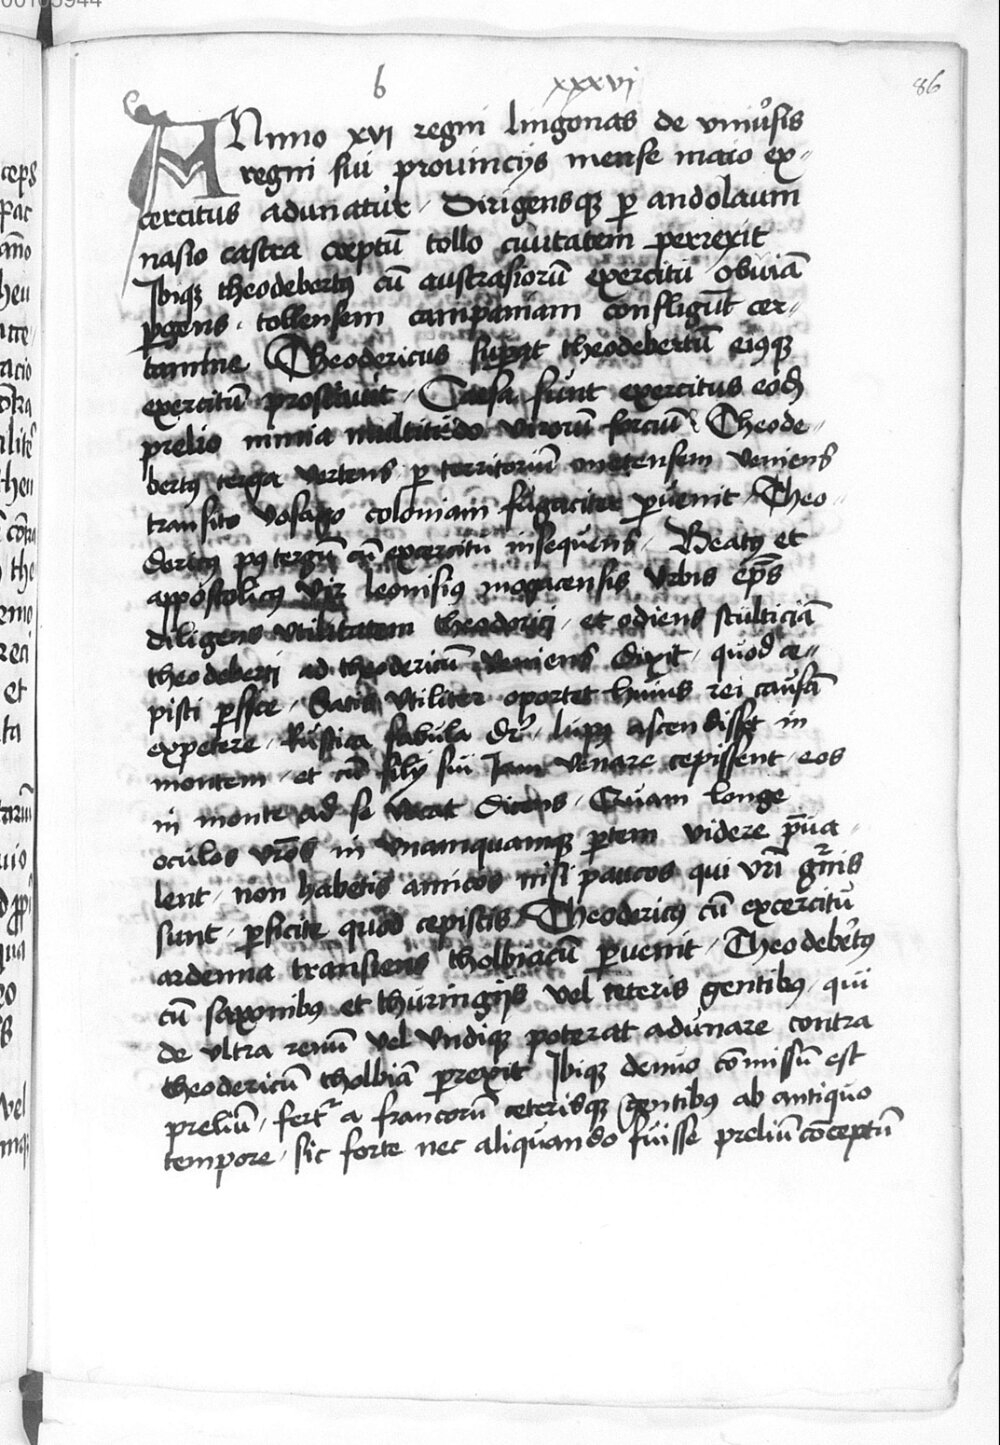 b xxxvi 86
Anno xvi regni lingonas de vniůsis
regni sui prouincijs mense maio ex-
cercitus adunatur / Dirigensqꝫ ꝑ andolaum
nasio castra ceptū tollo ciuitatem perrexit
Ibiqꝫ theodebertꝰ cū austrasiorū exercitu obuiā
ꝑgens . tollensem campaniam confligūt cer-
tamine Theodericus suꝑat theodebertū eiꝰqꝫ
exercitū prostrauit / Caesa sunt exercitus eodē
prelio nimia multitudo virorū forciū Theode-
bertꝰ terga vertens ꝑ territoriū metensem veniens
transito vosago coloniam fugaciter ꝑuenit / Theo-
doricꝰ pꝰ tergū cū excercitu insequens / Beatꝰ et
appostolicꝰ vir leonisiꝰ mogacensis vrbis ep̄s
diligens vtilitatem theodorici / et odiens stulticiā
theodeberti ad theodericū veniens dixit / quod ce-
pisti ꝑfice / Satis vtiliter oportet huius rei causā
expetere / Rustica fabula dr̄ / lupꝰ ascendisset in
montem / et cū filij sui Iam venare cepissent / eos
in monte ad se vocat dicens / Quam longe
oculos vr̄os in vnamquamqꝫ ꝑtem videre p̄ua-
lent / non habetis amicos nisi paucos qui vr̄i gn̄is
sunt / ꝑficite quod cepistis / Theodericꝰ cū excercitu
ardenna transiens tholbiacū ꝑuenit / Theodebertꝰ
cū saxonibꝰ et thuringijs vel ceteris gentibꝰ / qui
de vltra renū vel vndiqꝫ poterat adunare contra
theodericū tholbiā ꝑrexit Ibiqꝫ denuo cō̄missū est
preliū / fertr̄ a francorū ceterisqꝫ gentibꝰ ab antiquo
tempore / sic forte nec aliquando fuisse preliū cōceptū